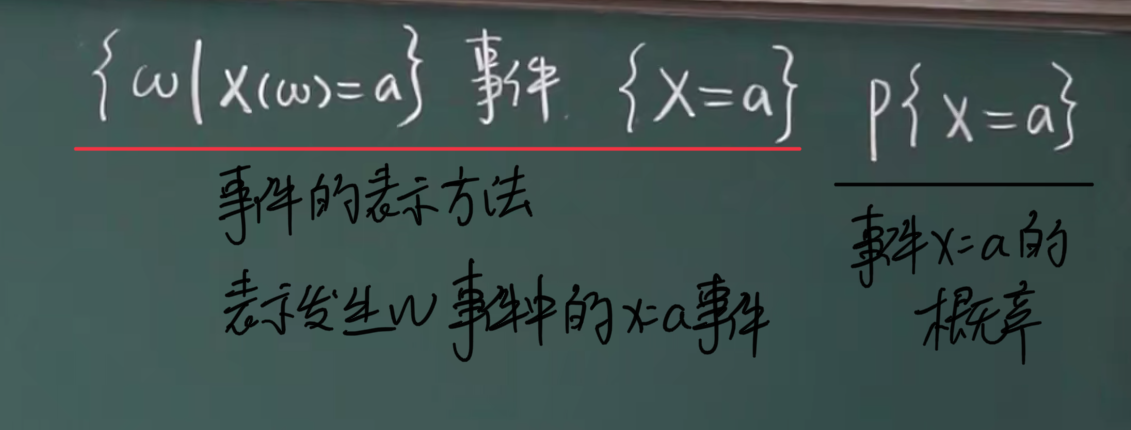 {ω|X(ω)=a} 事件. {X=a} P{X=a}
事件的表示方法
表示发生w事件中的x=a事件
事件x=a的
概率